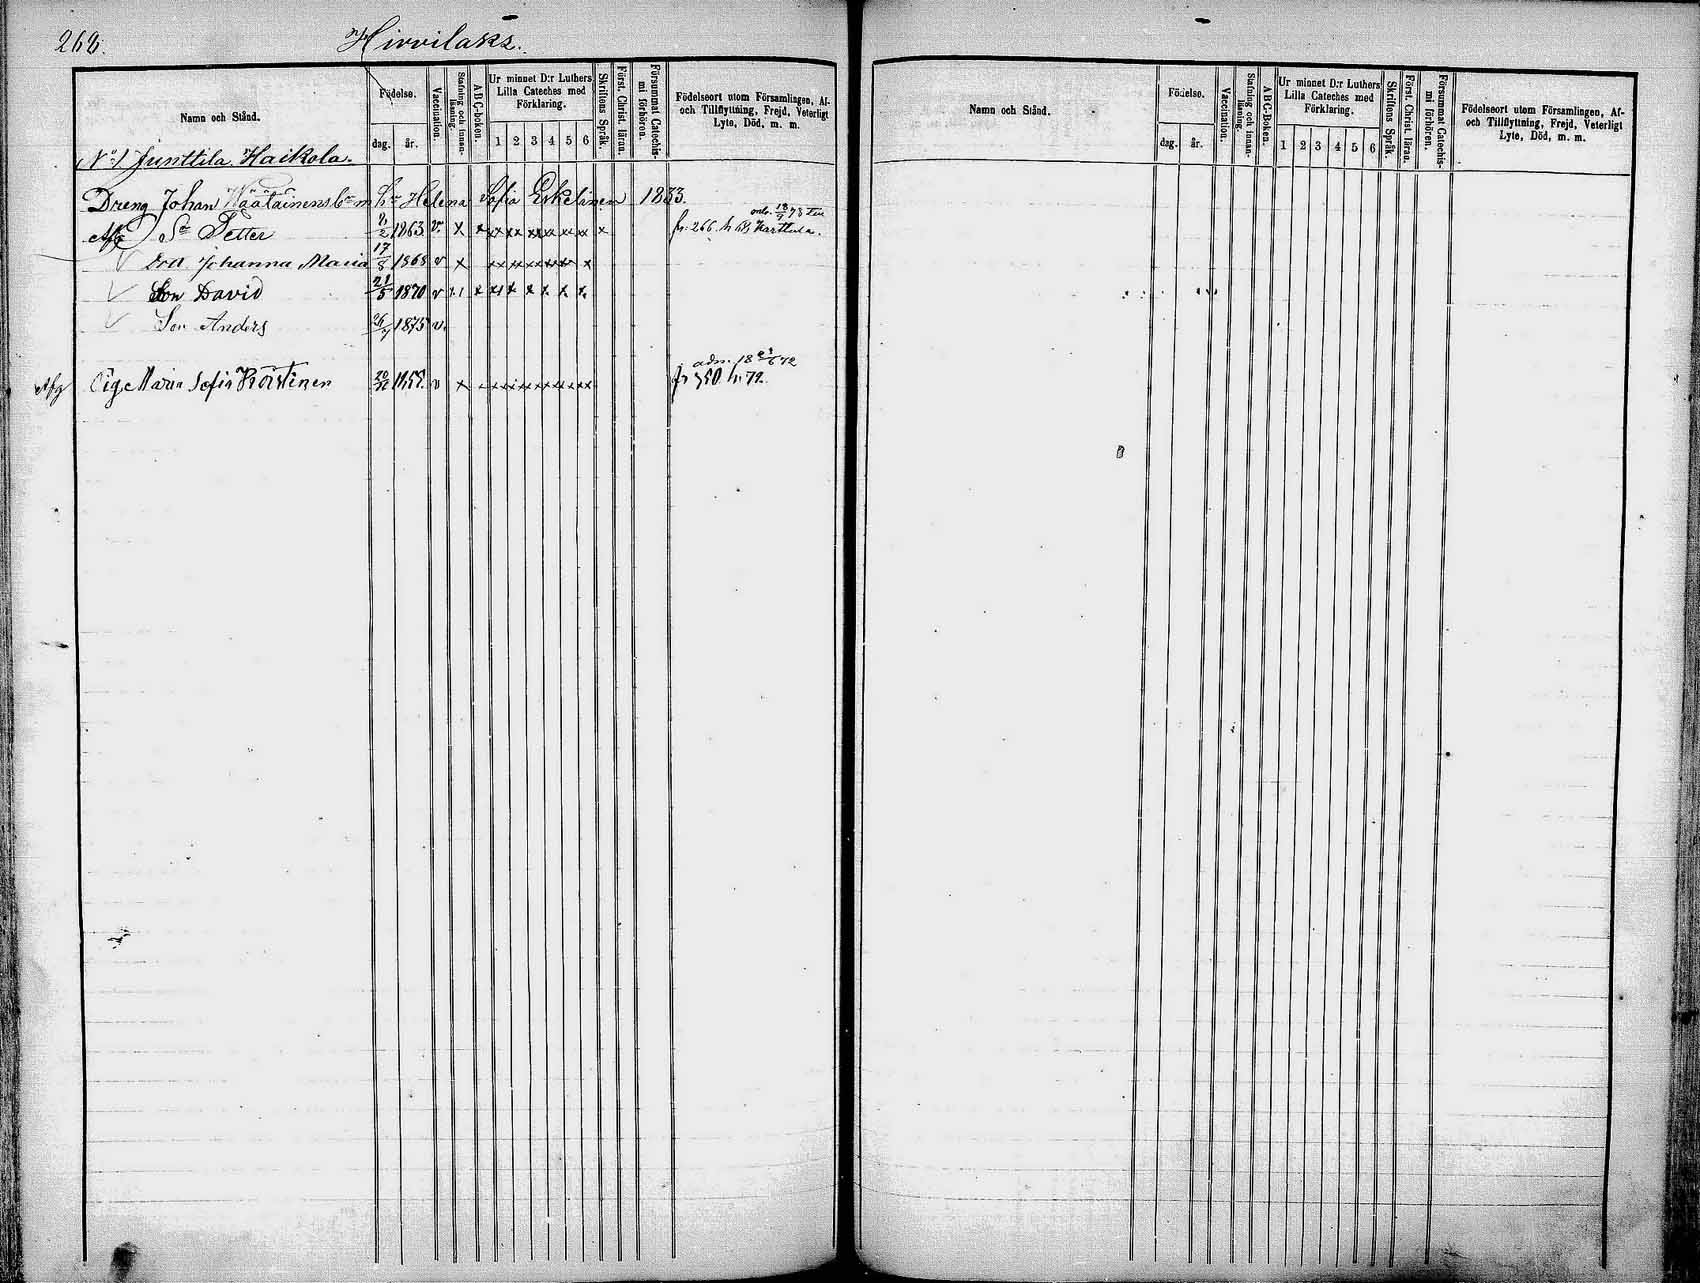 268.
Hirvilaks.
Namn och Stånd.
Födelse.
dag.
år.
Vaccination.
Stafning och innanläsning.
ABC-boken.
Ur minnet D:r Luthers Lilla Cateches med Förklaring.
1 2 3 4 5 6
Skriftens Språk.
Först. Christ. läran.
Försummat Catechismi förhören.
Födelseort utom Församlingen, Af- och Tillflyttning, Frejd, Veterligt Lyte, Död, m. m.
No 1 Junttila Haikola.
Dreng Johan Wäätäinens b:n m h:u Helena Sofia Eskelinen 1833.
Afg Sn Petter 2/2 1863 v. x x xx xx xxx xx xx xx x fr. 266. h 68 Karttula.
Johanna Maria 17/8 1868 v x
Son David 21/5 1870 v
Son Anders 26/7 1875 v.
Afg Pig. Maria Sofia 1855. v x
fr 350 h. 72.
Namn och Stånd.
Födelse.
dag.
år.
Vaccination.
Stafning och innanläsning.
ABC-Boken.
Ur minnet D:r Luthers Lilla Cateches med Förklaring.
1 2 3 4 5 6
Skriftens Språk.
Först. Christ. läran.
Försummat Catechismi förhören.
Födelseort utom Församlingen, Af- och Tillflyttning, Frejd, Veterligt Lyte, Död, m. m.